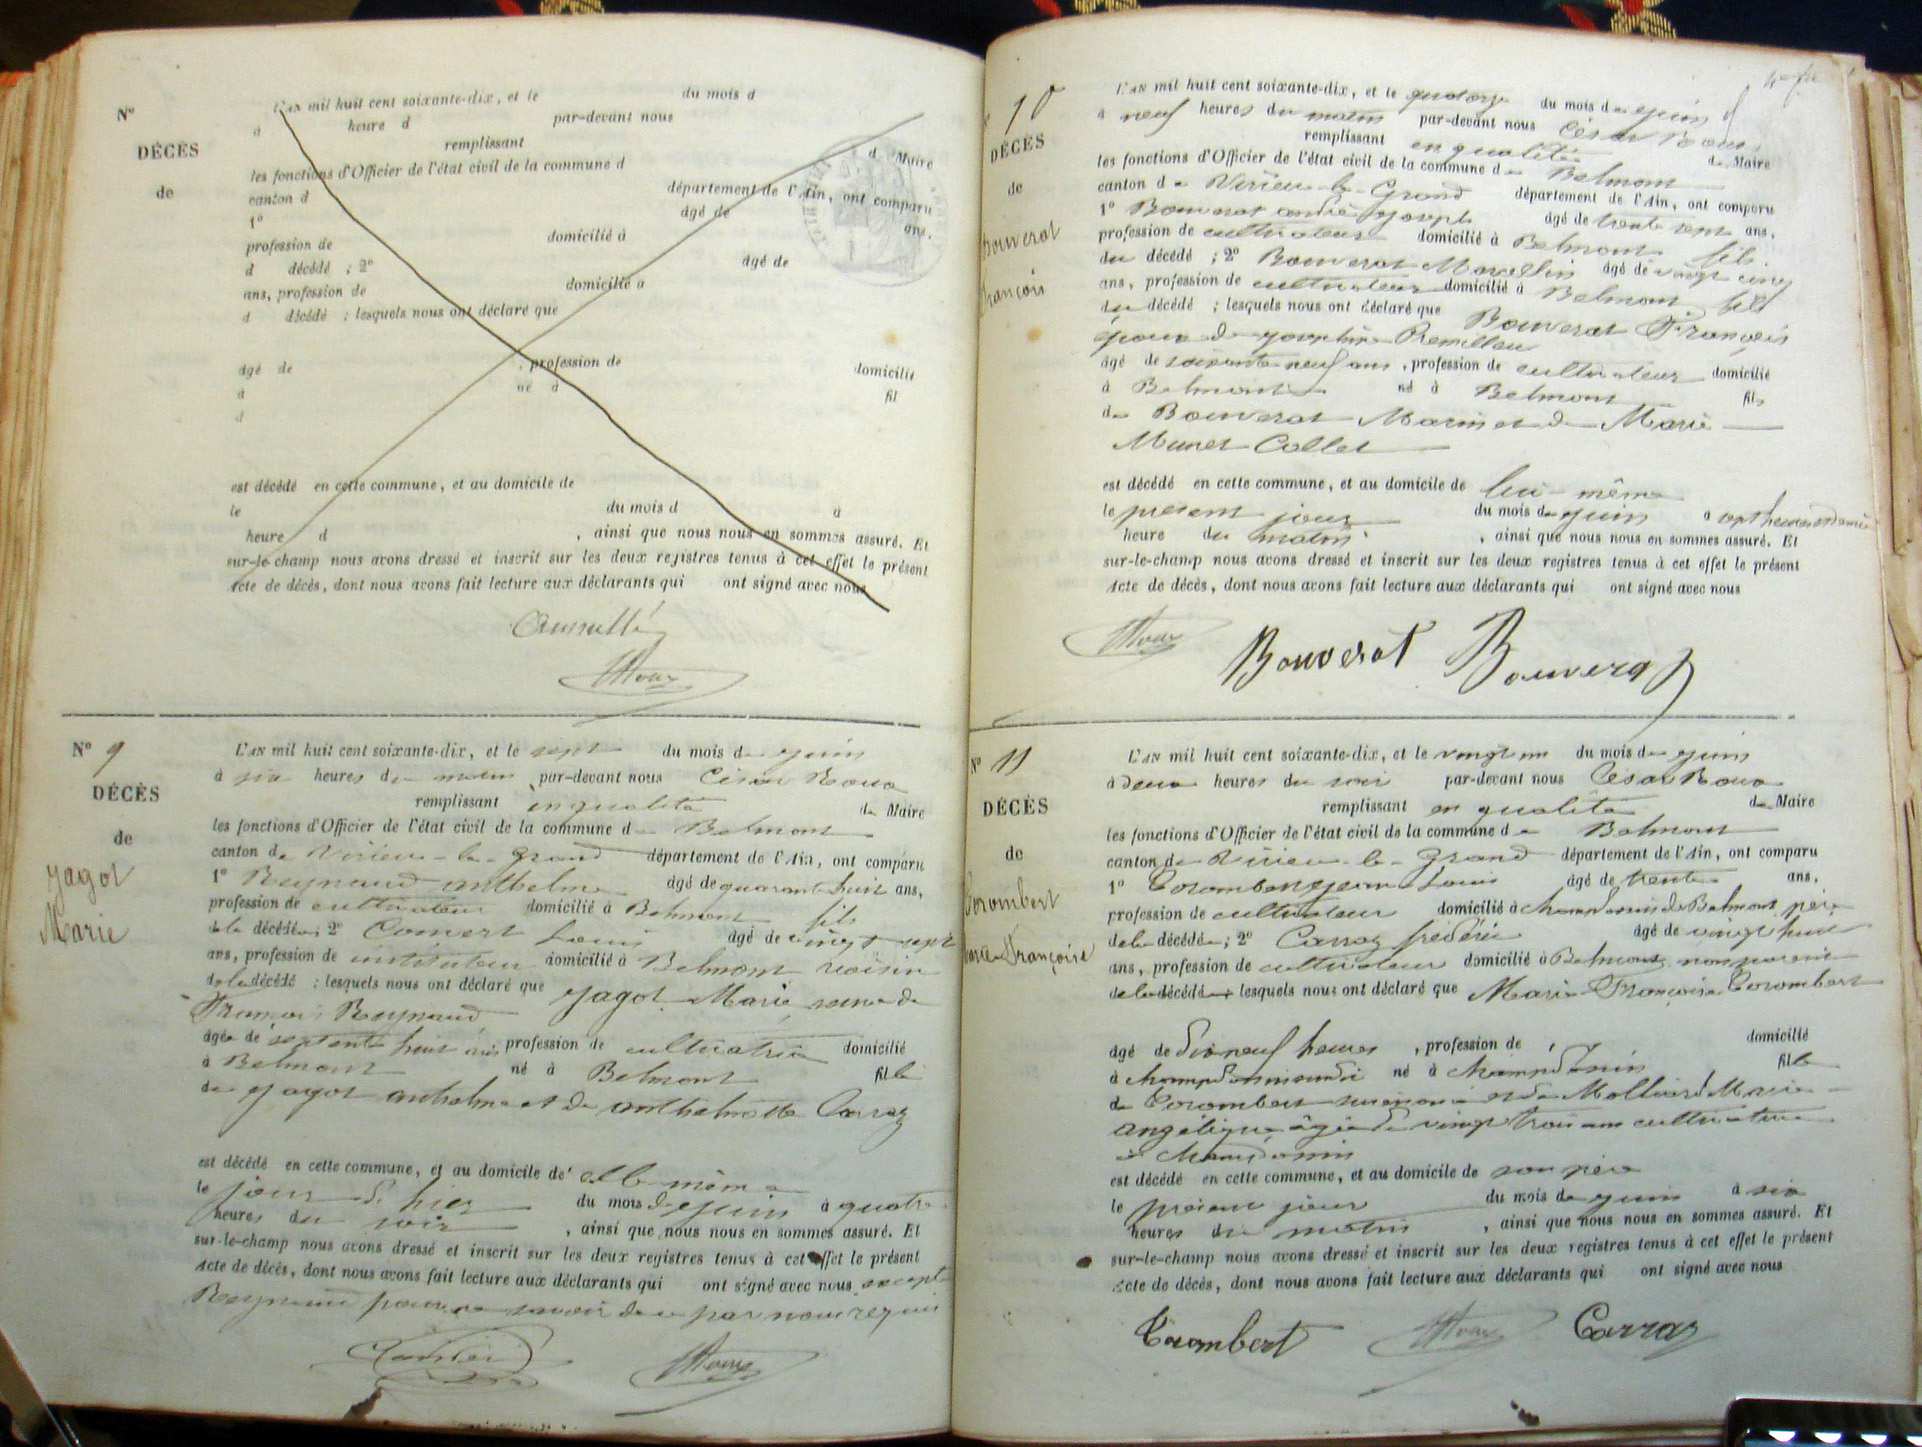 N°
DÉCÈS
de
L'AN mil huit cent soixante-dix, et le du mois d
à heure d par-devant nous
remplissant d Maire
les fonctions d'Officier de l'état civil de la commune d
canton d département de l'Ain, ont comparu
1° âgé de ans,
profession de domicilié à
d décédé ; 2° âgé de
ans, profession de domicilié à
d décédé ; lesquels nous ont déclaré que
âgé de , profession de domicilié
à né à fil
d
est décédé en cette commune, et au domicile de
le du mois d à
heure d , ainsi que nous nous en sommes assuré. Et
sur-le-champ nous avons dressé et inscrit sur les deux registres tenus à cet effet le présent
Acte de décès, dont nous avons fait lecture aux déclarants qui ont signé avec nous
Annullé
Roux
N° 9
DÉCÈS
de
Jagot
Marie
L'AN mil huit cent soixante-dix, et le sept du mois de juin
à six heures du matin par-devant nous César Roux
remplissant en qualité de Maire
les fonctions d'Officier de l'état civil de la commune de Belmont
canton de Virieu-le-Grand département de l'Ain, ont comparu
1° Reynaud anthelme âgé de quarante huit ans,
profession de cultivateur domicilié à Belmont fils
de la décédée ; 2° Convert Louis âgé de vingt sept
ans, profession de instituteur domicilié à Belmont voisin
de la décédé ; lesquels nous ont déclaré que Jagot Marie, veuve de
François Reynaud
âgée de septante huit ans profession de cultivatrice domicilié
à Belmont né à Belmont fille
de Jagot anthelme et de anthelmette Carraz
est décédé en cette commune, et au domicile de elle même
le jour d'hier du mois de juin à quatre
heures du soir , ainsi que nous nous en sommes assuré. Et
sur-le-champ nous avons dressé et inscrit sur les deux registres tenus à cet effet le présent
Acte de décès, dont nous avons fait lecture aux déclarants qui ont signé avec nous excepté
Reynaud pour ne savoir de ce par nous requis
Roux
10
DÉCÈS
de
Bouverat
François
L'AN mil huit cent soixante-dix, et le quatorze du mois de juin
à neuf heures du matin par-devant nous César Roux
remplissant en qualité de Maire
les fonctions d'Officier de l'état civil de la commune de Belmont
canton de Virieu-le-Grand département de l'Ain, ont comparu
1° Bouverat andré joseph âgé de trente sept ans,
profession de cultivateur domicilié à Belmont fils
du décédé ; 2° Bouverat Marcellin âgé de vingt cinq
ans, profession de cultivateur domicilié à Belmont fils
du décédé ; lesquels nous ont déclaré que Bouverat François
époux de josephine Remilleu
âgé de soixante neuf ans , profession de cultivateur domicilié
à Belmont né à Belmont fils
de Bouverat Marin et de Marie
Munet Collet
est décédé en cette commune, et au domicile de lui-même
le présent jour du mois de juin à sept heures et demie
heure du matin , ainsi que nous nous en sommes assuré. Et
sur-le-champ nous avons dressé et inscrit sur les deux registres tenus à cet effet le présent
Acte de décès, dont nous avons fait lecture aux déclarants qui ont signé avec nous
Roux Bouverat Bouverat
N° 11
DÉCÈS
de
Corombert
Marie Françoise
L'AN mil huit cent soixante-dix, et le vingt un du mois de juin
à deux heures du soir par-devant nous César Roux
remplissant en qualité de Maire
les fonctions d'Officier de l'état civil de la commune de Belmont
canton de Virieu-le-Grand département de l'Ain, ont comparu
1° Corombert jean Louis âgé de trente ans,
profession de cultivateur domicilié à champdonin de Belmont père
de la décédée ; 2° Carraz frédéric âgé de vingt huit
ans, profession de cultivateur domicilié à Belmont non parent
de la décédée lesquels nous ont déclaré que Marie Françoise Corombert
âgé de dixneuf heures , profession de domicilié
à né à champdonin fille
de Corombert et de Mollard Marie
angélique âgée de vingt trois ans cultivatrice
à
est décédé en cette commune, et au domicile de son père
le présent jour du mois de juin à six
heures du matin , ainsi que nous nous en sommes assuré. Et
sur-le-champ nous avons dressé et inscrit sur les deux registres tenus à cet effet le présent
Acte de décès, dont nous avons fait lecture aux déclarants qui ont signé avec nous
Corombert Roux Carraz